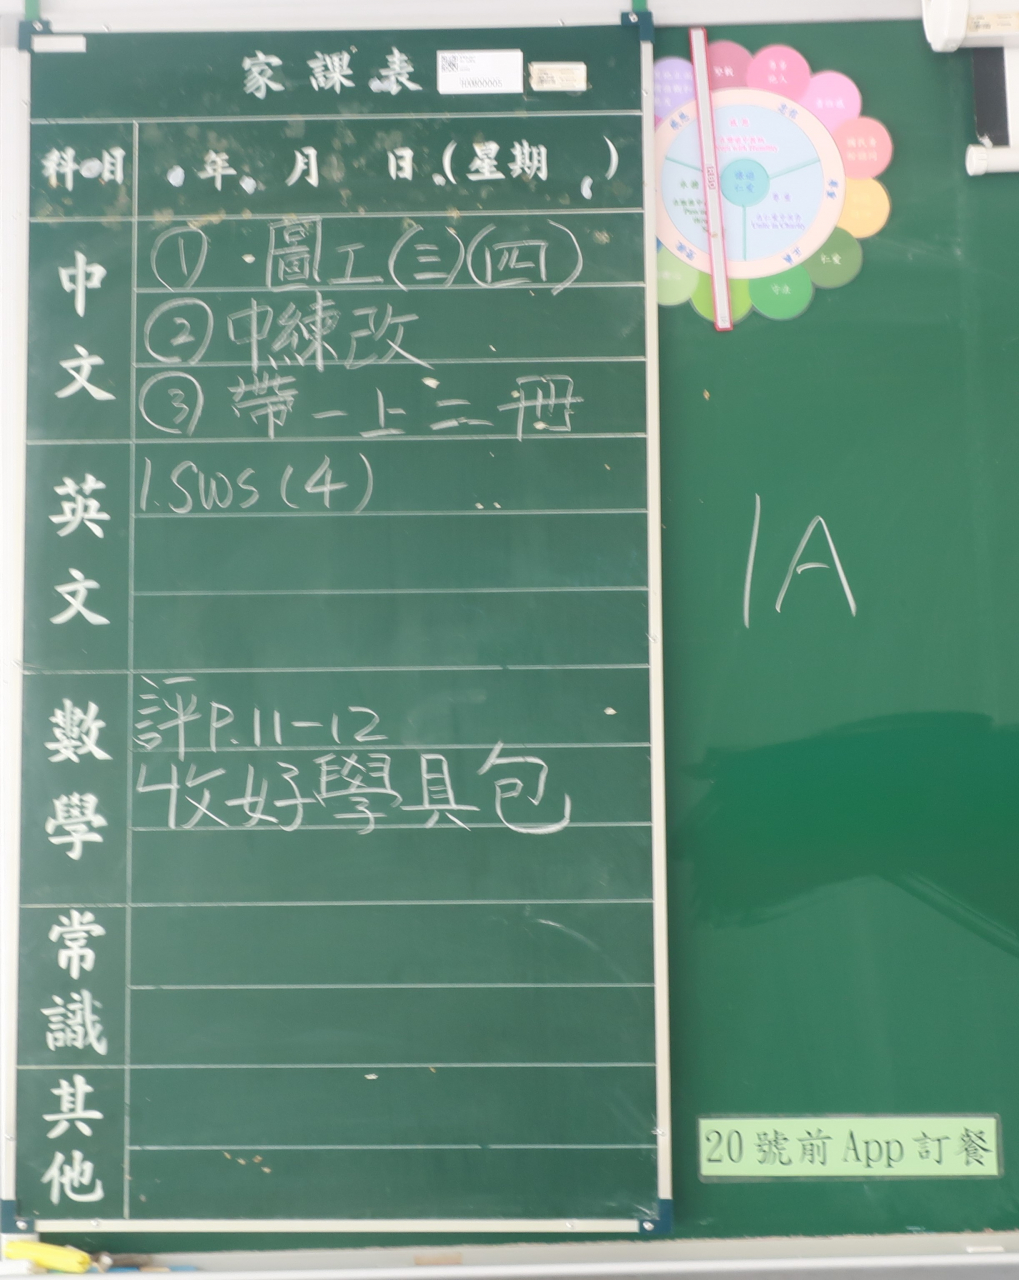 家課表
科目 年 月 日(星期 )
中文
① 圖工(三)(四)
② 中練改
③ 帶一上二冊
英文
1.SWS(4)
數學
評P.11-12
收好學具包
常識
其他
1A
20號前App訂餐
仁愛
守法